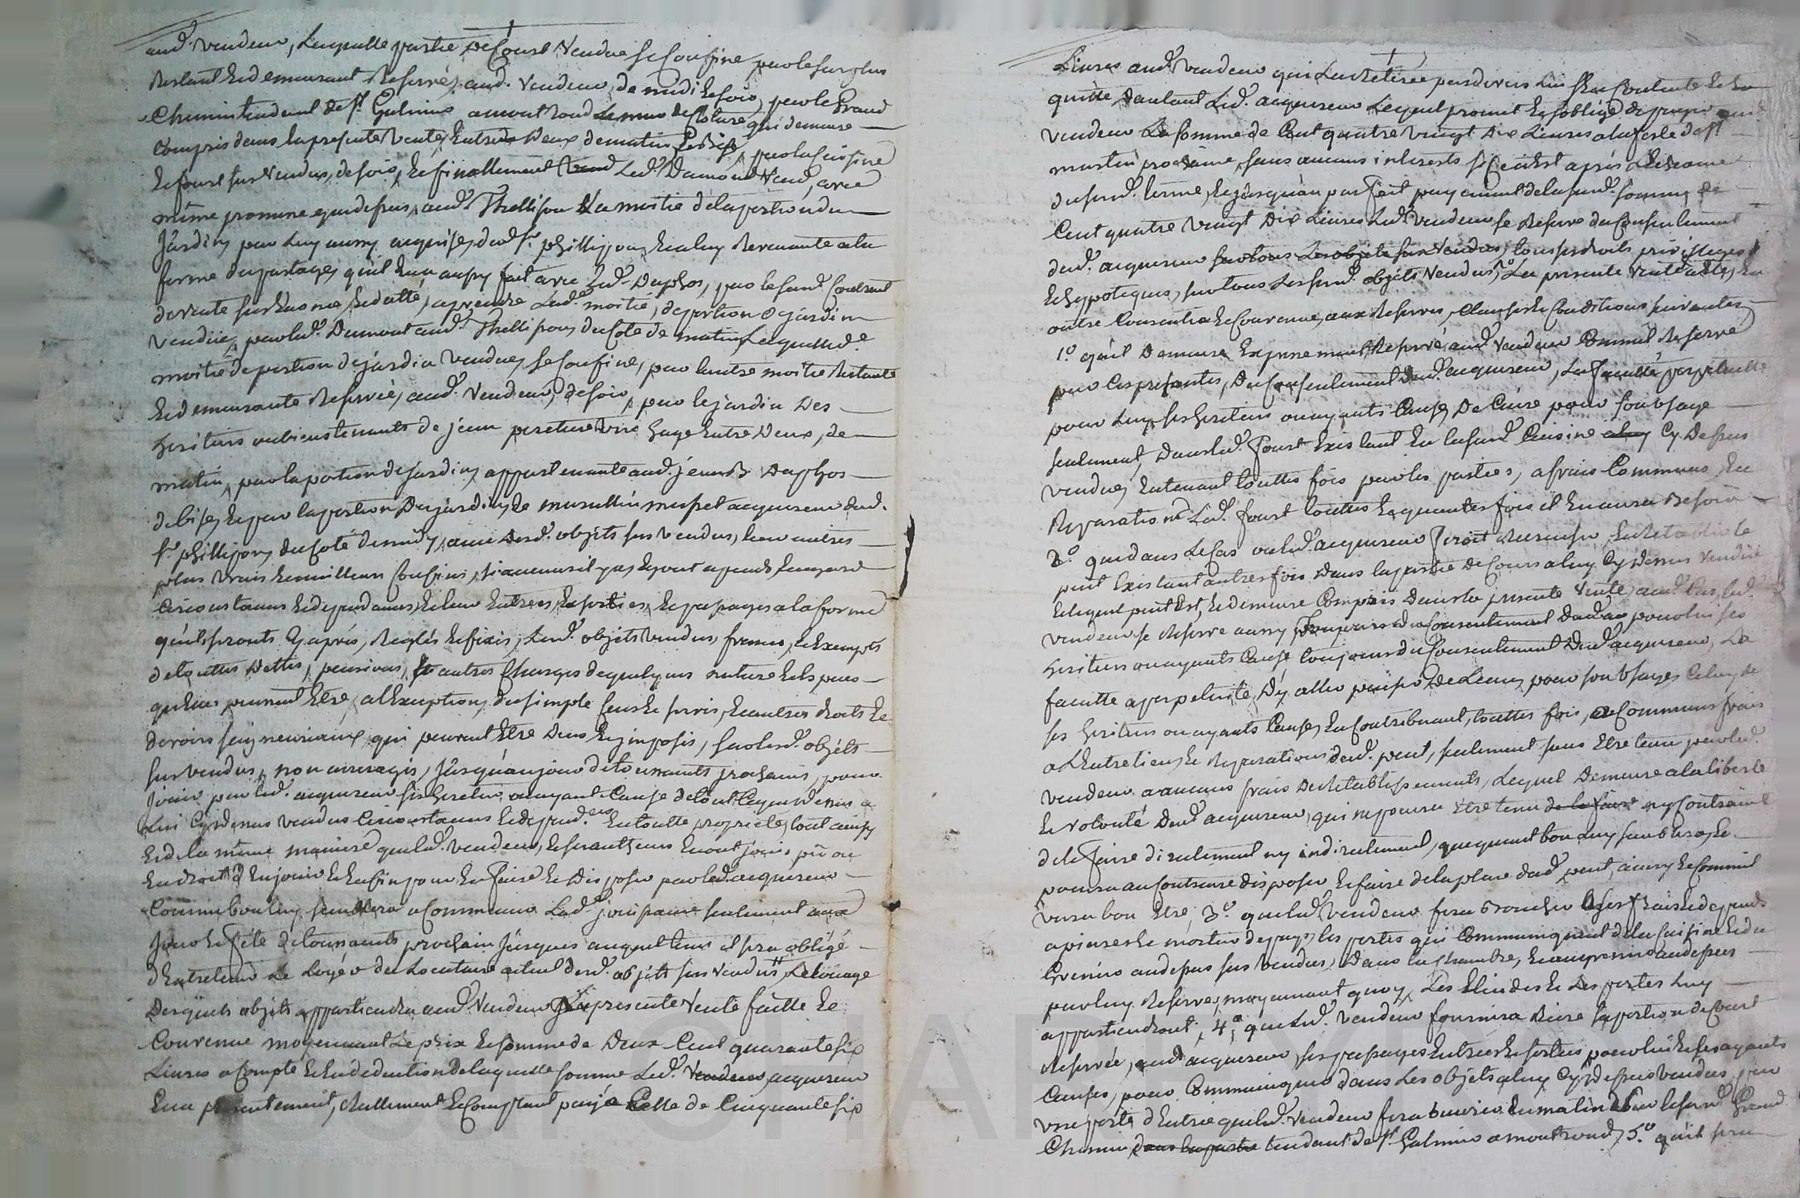 aud. vendeur, Laquelle partie De Court Vendue se Confine par le surplus
Restant et demeurant Reservé, aud. Vendeur, de midi et soir, par le Grand
Chemin tendant de St. Galmier a montrond Le mur de Cloture, qui demeure
compris dans la presente Vente, Entre Deux de matin, par la Cuisine
et fourt sus Vendus, de soir, Et finallement Led. Dumont Vend, avec
même promine que dessus, aud. Thellison La moitié de la portion du
Jardin, par Luy aussy acquise, dud. Sr. phillipon, Et a luy Revenante a la
forme du partage, qu'il En a aussy fait avec Led. Duplos, par le susd. Contrat
de vente sus Enoncé, et datté, a prendre Lad. moitié, de portion de jardin
Vendüe, par led. Dumont aud. Thellison, du Coté de matin, Laquelle de
moitié de portion de jardin Vendue, se Confine, par l'autre moitié Restante
Et demeurante Reservée, aud. Vendeur, de soir, par le jardin Des
heritiers ou bientenants de jean haye Entre Deux, de
matin, par la portion de jardin, appartenante aud. Duplos
de bise, Et par la portion Du jardin, de acquereur dud.
Sr. phillipon, du Coté de midy, avec Lesd. objets sus vendus, leurs autres
plus vrais et meilleurs Confins, si aucuns il y a,
Circonstances Et dependances, Et leurs Entrées, Et sorties, Et passages a la forme
qu'ils seronts Cy après, Reglés Et fixés, Lesd. objets Vendus, francs, et Exempts
de touttes Dettes, pensions, et autres Charges de quelques nature qu'elles
puissent Etre, a l'Exception, du simple Cens et servis, et autres droits Et
devoirs seigneuriaux, qui peuvent Etre Deus, Et imposés, sur lesd. objets
sus vendus, non arreragés, jusqu'au jour de toussaints prochain, pour
jouir par led. acquereur ses heritiers ou ayants Cause de tout Ce que Dessus a
Lui Cy Dessus vendus Circonstances Et depend.ces En toutte proprieté, tout ainsy
Et de la même maniere que led. Vendeur, Et ses autheurs En ont jouis, pü ou
En droit d'En jouir Et Enfin pour En faire Et Disposer par led. acquereur
Comme bon luy semblera a Commencer Lad. jouissance seulement
jour Et fête de toussaints prochain jusques auquel tems il sera obligé
d'Entretenir Le Loyer du Locataire actuel desd. objets sus vendus, Le Louage
Desquels objets appartiendra aud. Vendeur La presente Vente faitte Et
Convenue moyennant Le prix Et somme de Deux Cent quarante six
Livres a Compte Et En deduction de laquelle somme Led. Vendeur acquereur
En a presentement, Réellement Et Comptant payé Celle de Cinquante six
Livres aud. Vendeur qui L'a Retirée pardevers Lui S'En Contente Et En
quitte D'autant Led. acquereur Lequel promet Et s'oblige de payer aud.
Vendeur La somme de Cent quatre Vingt Dix Livres a la fête de St.
martin prochaine, sans aucuns interests Si Ce n'Est après L'Echeance
du susd. terme, Et jusqu'au parfait payement de la susd. somme de
Cent quatre Vingt Dix Livres Led. Vendeur se Reserve du Consentement
dud. acquereur sur tous Les objets sus vendus, tous ses droits privilleges
Et hypoteques, sur tous Les susd. objets Vendus, La presente Vente faitte, En
outre Consentie Et Convenue, aux Reserves, Clauses Et Conditions suivantes,
1.° qu'il Demeure Expressement Reservé aud. Vendeur Comme il Reserve
par Ces presentes, Du Consentement Dud. acquereur, La faculté perpetuelle
pour Luy, ses heritiers ou ayants Cause, De Cuire pour son Usage
seulement, Dans led. fourt Existant En la susd. Cuisine Cy Dessus
Vendue, Entenant touttes fois par les parties, a frais Communs, En
Reparations Led. fourt touttes Et quantes fois il En aura Besoin
2.° que dans Le Cas ou led. acquereur feroit Creuser, Et Retablir le
puit Existant autres fois Dans la partie De Cours a luy Cy Dessus Vendüe
Et lequel puit Est, Et demeure Compris Dans la presente Vente, aud. Cas, led.
Vendeur se Reserve aussy pour lui ses
heritiers ou ayants Cause toujours du Consentement Dud. acquereur, La
faculté a perpetuité, D'y aller puiser De L'eau, pour son Usage, Celuy de
ses heritiers ou ayants Cause, En Contribuant, touttes fois, a Communs frais
a L'Entretien, Et Reparations dud. puit, seulement sans Etre tenu par led.
Vendeur a aucuns frais De Retablissements, Lequel Demeure a la liberté
Et volonté Dud. acquereur, qui ne pourra Etre tenu de le faire ny Contraint
de le faire directement ny indirectement, que quand bon Luy semblera, Et
pourra au Contraire disposer Et faire de la place dud. puit, ainsy Et Comme il
Verra bon Etre, 3.° que led. Vendeur fera boucher a ses frais Et depends
a pierres Et mortier de pays, les portes qui Communiquent de la Cuisine Et du
Grenier au dessus sus vendus, Dans la Chambre, Et au grenier au dessus
par luy Reservés, moyennant quoy, Les Et Les portes Luy
appartiendront, 4.° que led. Vendeur fournira Riere la portion de Court
Reservée, aud. acquereur, ses passages Entrées Et sorties pour lui Et ses ayants
Causes, pour Communiquer dans Les objets a luy Cy dessus Vendus, par
une porte d'Entrée que led. Vendeur fera ouvrir du matin sur le susd. Grand
Chemin, dans la partie tendant de St. Galmier a montrond, 5.° qu'il sera